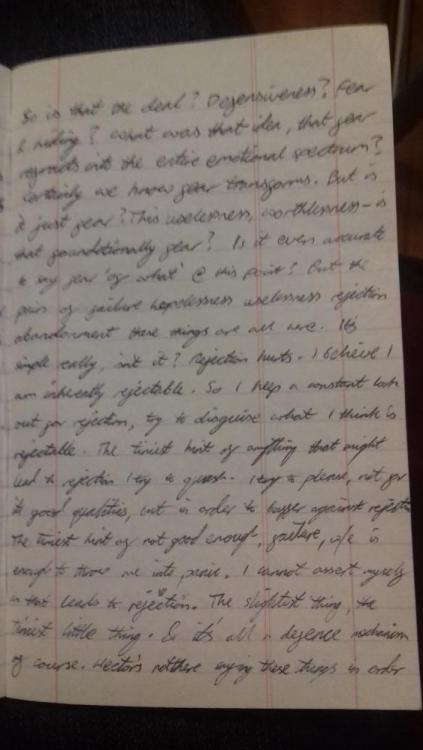 So is that the deal? Defensiveness? Fear
& hiding? What was that idea, that fear
refracts into the entire emotional spectrum?
Certainly we know fear transforms. But is
it just fear? This uselessness, worthlessness – is
that foundationally fear? Is it even accurate
to say fear 'of what' @ this point? But the
pain of failure hopelessness uselessness rejection
abandonment these things are all here. It's
simple really, isn't it? Rejection hurts. I believe I
am inherently rejectable. So I keep a constant look
out for rejection, try to disguise what I think is
rejectable. The tiniest hint of anything that might
lead to rejection I try to quash. I try to please, not for
its good qualities, but in order to buffer against rejection
The tiniest hint of not good enough, failure, w/e is
enough to throw me into panic. I cannot assert myself
as that leads to rejection. The slightest thing, the
tiniest little thing. & it's all a defence mechanism
of course. Hector's not there saying these things in order